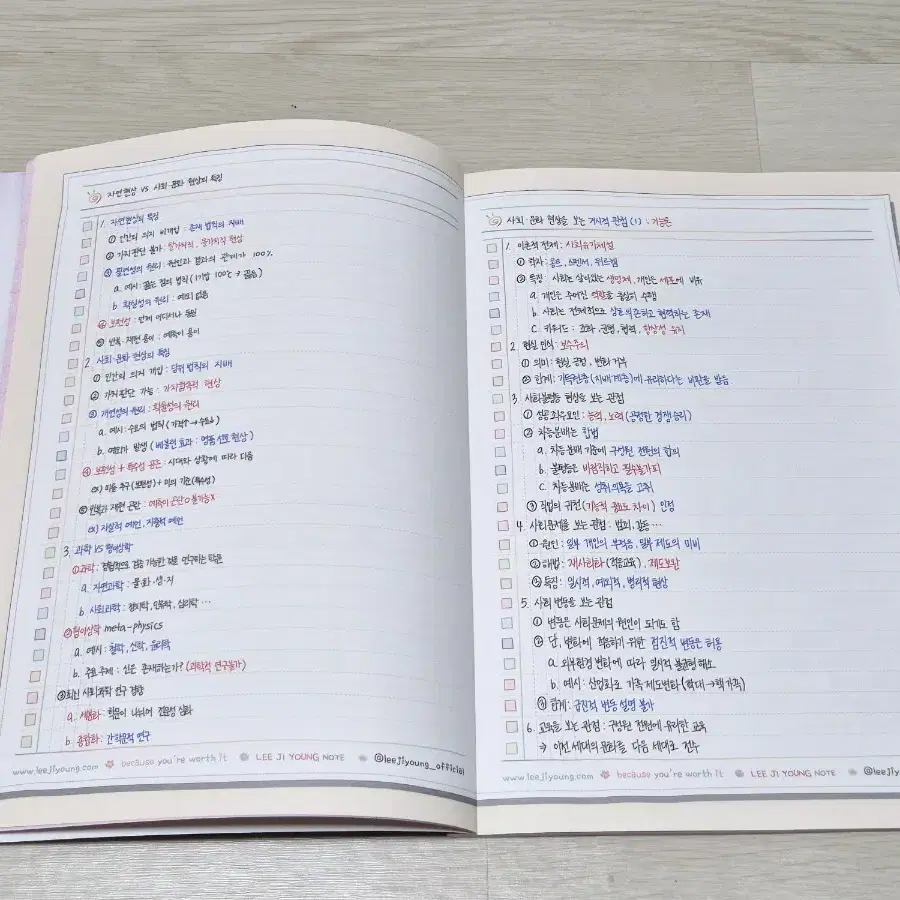 자연현상 VS 사회·문화 현상의 특징
1. 자연현상의 특징
① 인간의 의지 미개입 : 존재 법칙의 지배
② 가치 판단 불가 : 몰가치적, 몰가치적 현상
③ 필연성의 원리 : 원인과 결과의 관계가 100%
a. 예시 : 끓는 점의 법칙 (1기압 100℃ → 끓음)
b. 확실성의 원리 : 예외 없음
④ 보편성 : 언제 어디서나 동일
⑤ 반복·재현 용이 : 예측이 용이
2. 사회·문화 현상의 특징
① 인간의 의지 개입 : 당위 법칙의 지배
② 가치 판단 가능 : 가치함축적 현상
③ 개연성의 원리 : 확률의 원리
a. 예시 : 수요의 법칙 (가격↑ → 수요↓)
b. 예외가 발생 (베블런 효과 : 명품 선호 현상)
④ 보편성 + 특수성 공존 : 시대와 상황에 따라 다름
ex) 미를 추구 (보편성) + 미의 기준 (특수성)
⑤ 반복과 재현 곤란 : 예측이 곤란 O 불가능 X
ex) 자살적 예언, 자충적 예언
3. 과학 VS 형이상학
① 과학 : 경험적으로 검증 가능한 것을 연구하는 학문
a. 자연과학 : 물·화·생·지
b. 사회과학 : 정치학, 인류학, 심리학 …
② 형이상학 meta-physics
a. 예시 : 철학, 신학, 윤리학
b. 주요 주제 : 신은 존재하는가? (과학적 연구불가)
③ 최신 사회과학 연구 경향
a. 세분화 : 학문이 나뉘어 전문성 심화
b. 종합화 : 간학문적 연구
www.leejiyoung.com because you're worth it LEE JI YOUNG NOTE @leejiyoung_official
사회·문화 현상을 보는 거시적 관점 (1) : 기능론
1. 이론적 전제 : 사회유기체설
① 학자 : 콩트, 스펜서, 뒤르켐
② 특징 : 사회는 살아있는 생명체, 개인은 세포에 비유
a. 개인은 주어진 역할을 충실히 수행
b. 사회는 전체적으로 상호의존하고 협력하는 존재
c. 키워드 : 조화, 균형, 협력, 항상성 유지
2. 현실 인식 : 보수주의
① 의미 : 현실 긍정, 변화 거부
② 한계 : 기득권층 (지배 계층)에 유리하다는 비판을 받음
3. 사회불평등 현상을 보는 관점
① 성공 좌우 요인 : 능력, 노력 (공정한 경쟁 승리)
② 차등분배는 합법
a. 차등분배 기준에 구성원 전원의 합의
b. 불평등은 바람직하고 필수불가피
c. 차등분배는 성취 의욕을 고취
③ 직업의 귀천 (기능적 중요도 차이) 인정
4. 사회문제를 보는 관점 : 범죄, 갈등 …
① 원인 : 일부 개인의 부적응, 일부 제도의 미비
② 해법 : 재사회화 (적응교육), 제도보완
③ 특징 : 일시적, 예외적, 병리적 현상
5. 사회 변동을 보는 관점
① 변동은 사회문제의 원인이 되기도 함
② 단, 변화에 적응하기 위한 점진적 변동은 허용
a. 외부환경 변화에 따라 일시적 불균형 해소
b. 예시 : 산업화로 가족 제도변화 (확대 → 핵가족)
③ 한계 : 급진적 변동 설명 불가
6. 교육을 보는 관점 : 구성원 전원에 유리한 교육
⇒ 이전 세대의 문화를 다음 세대로 전수
www.leejiyoung.com because you're worth it LEE JI YOUNG NOTE